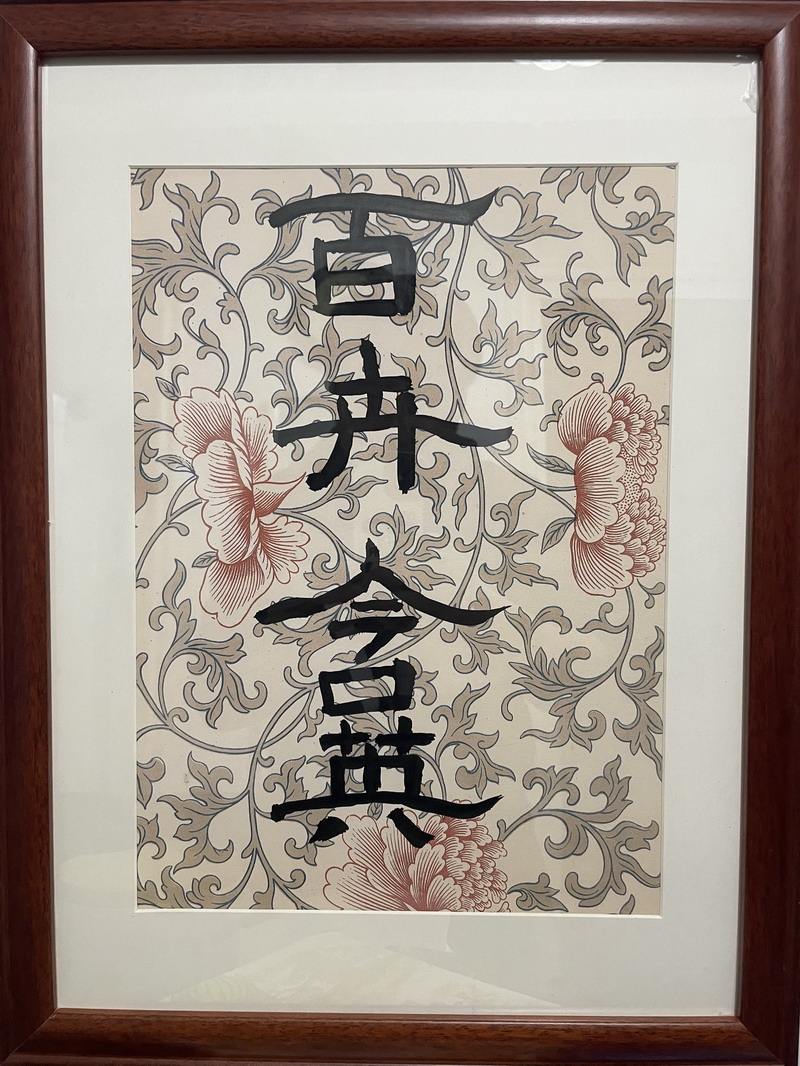 百卉含英